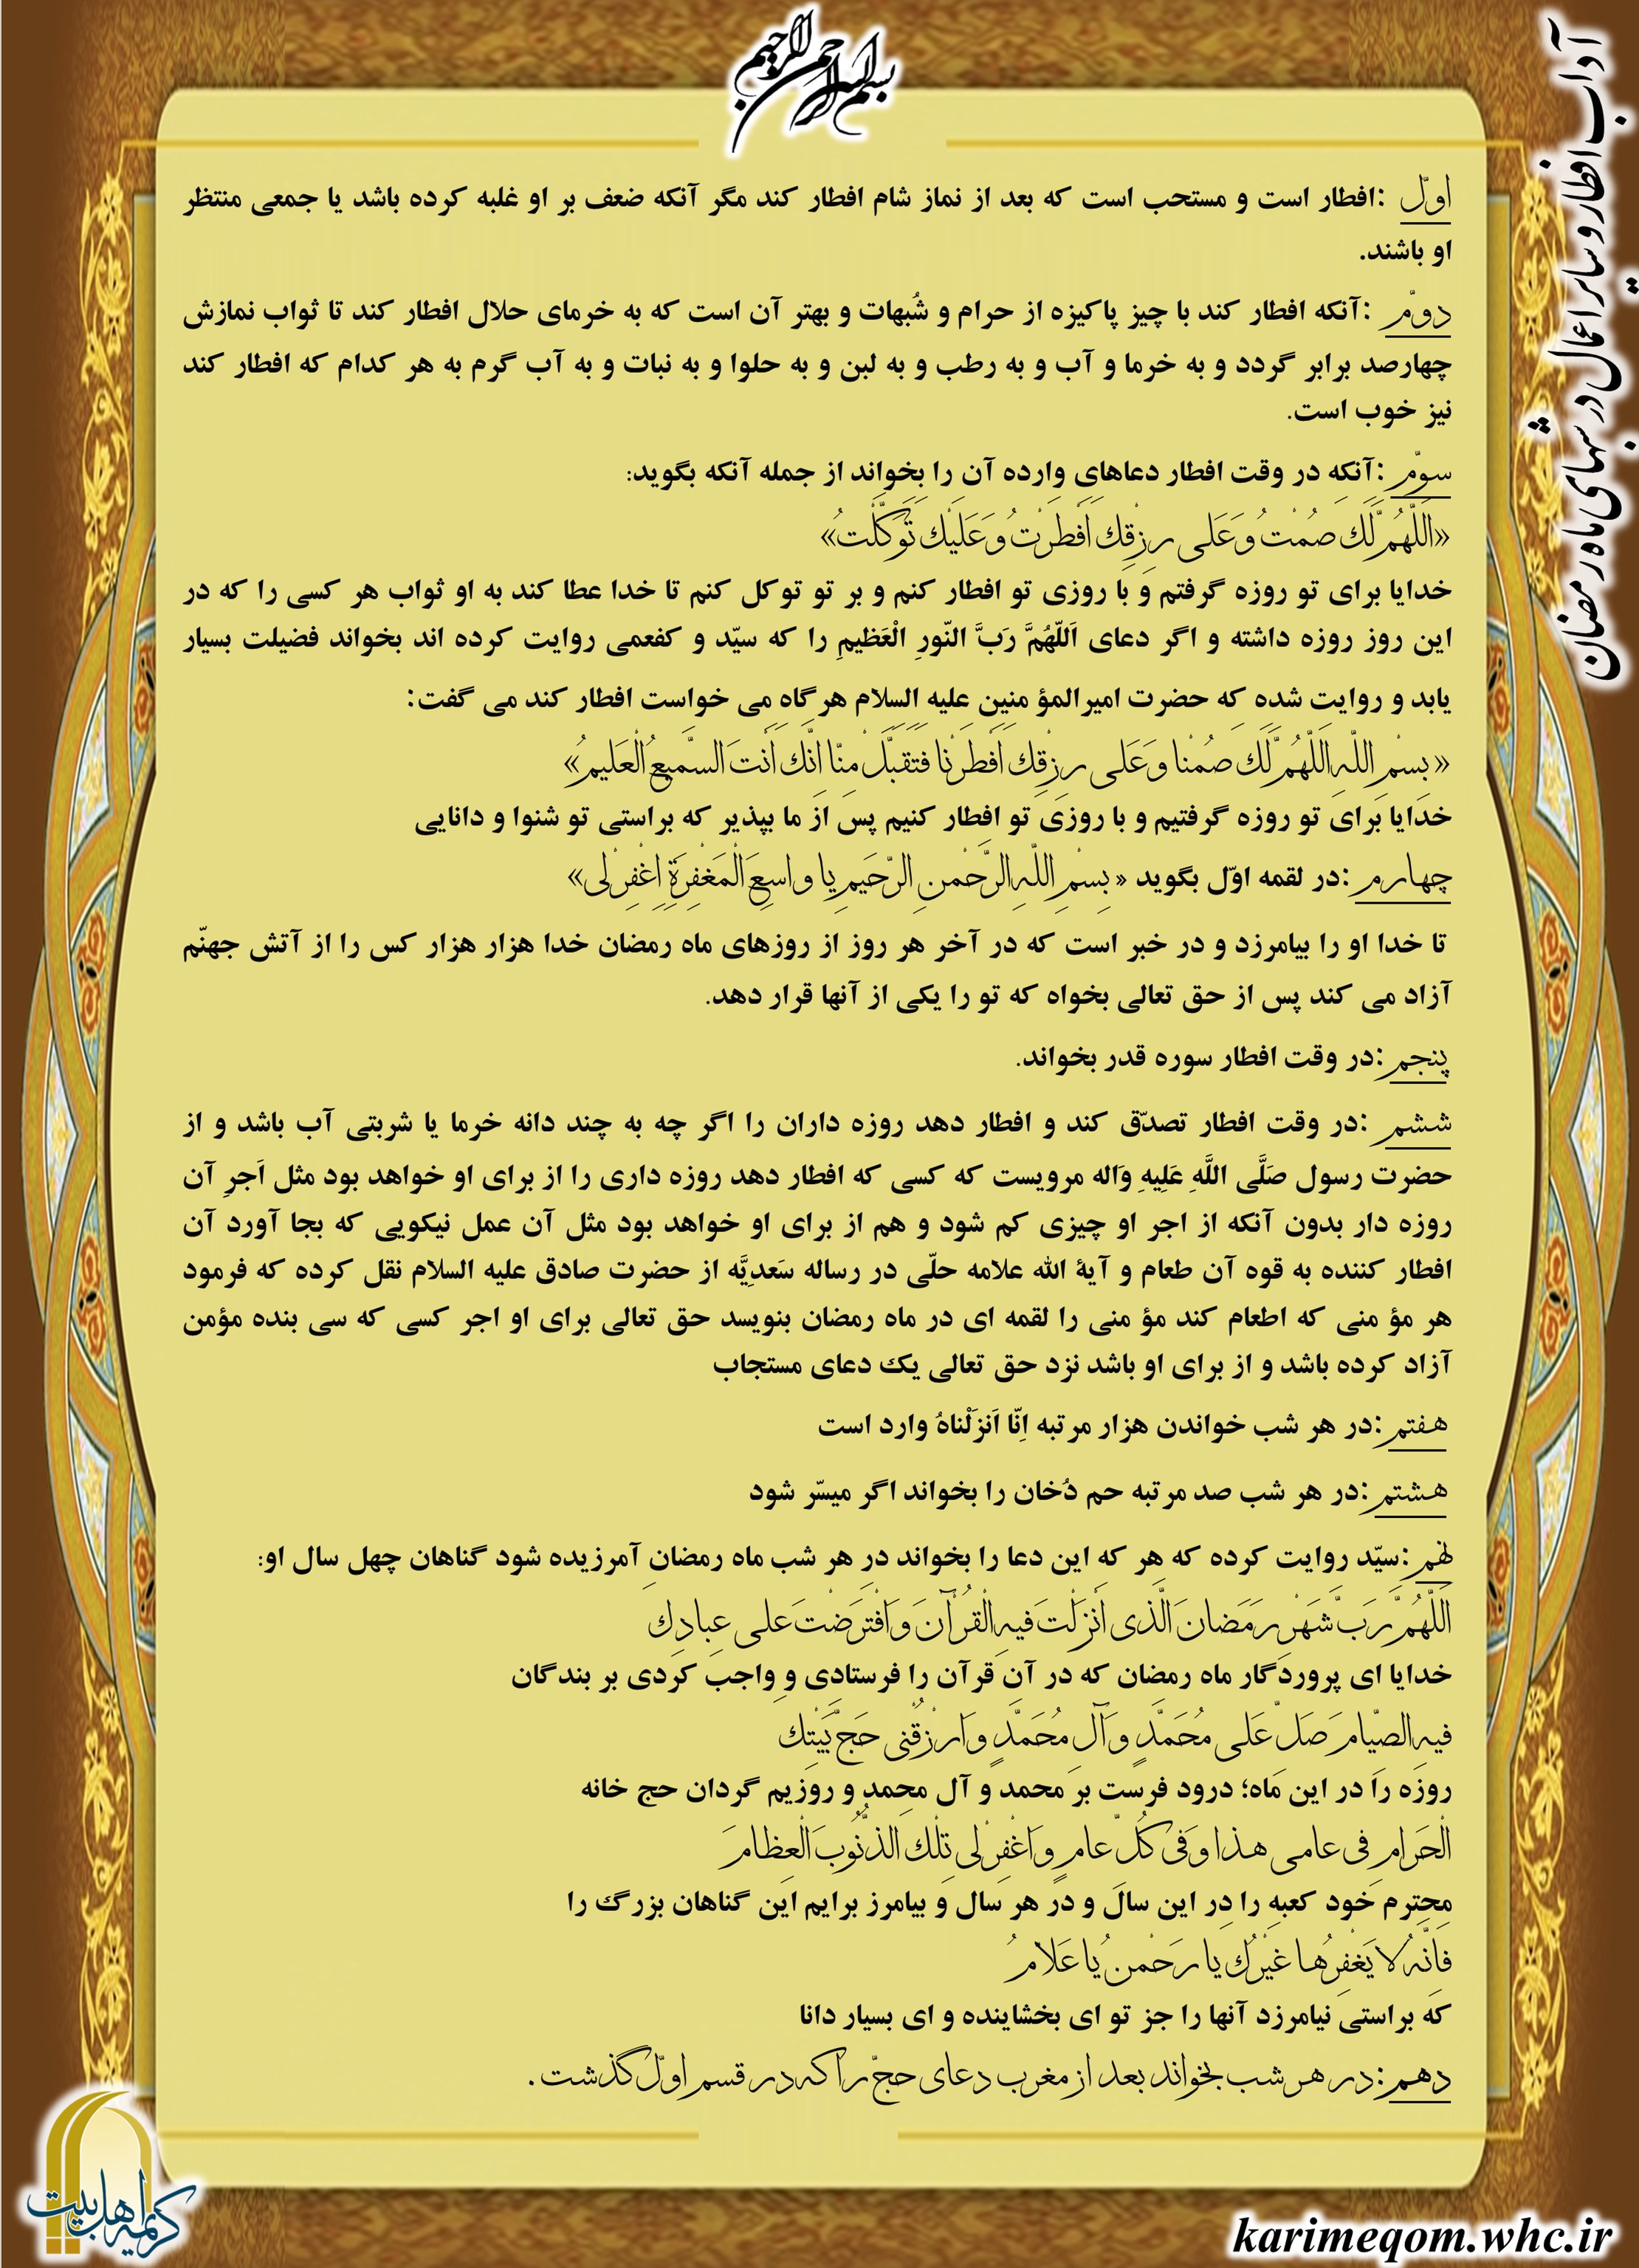 بسم الله الرحمن الرحیم
آداب افطار و سایر اعمال در شبهای ماه رمضان
اوّل :افطار است و مستحب است که بعد از نماز شام افطار کند مگر آنکه ضعف بر او غلبه کرده باشد یا جمعی منتظر
او باشند.
دوّم :آنکه افطار کند با چیز پاکیزه از حرام و شُبهات و بهتر آن است که به خرمای حلال افطار کند تا ثواب نمازش
چهارصد برابر گردد و به خرما و آب و به رطب و به لبن و به حلوا و به نبات و به آب گرم به هر کدام که افطار کند
نیز خوب است.
سوّم :آنکه در وقت افطار دعاهای وارده آن را بخواند از جمله آنکه بگوید:
«اَللّهُمَّ لَكَ صُمْتُ وَعَلى رِزْقِكَ اَفْطَرْتُ وَعَلَيْكَ تَوَكَّلْتُ»
خدایا برای تو روزه گرفتم و با روزی تو افطار کنم و بر تو توکل کنم تا خدا عطا کند به او ثواب هر کسی را که در
این روز روزه داشته و اگر دعای اَللّهُمَّ رَبَّ النّورِ الْعَظیمِ را که سیّد و کفعمی روایت کرده اند بخواند فضیلت بسیار
یابد و روایت شده که حضرت امیرالمؤ منین علیه السلام هرگاه می خواست افطار کند می گفت:
« بِسْمِ اللّهِ اَللّهُمَّ لَكَ صُمْنا وَعَلى رِزْقِكَ اَفْطَرْنا فَتَقَبَّلْ مِنّا اِنَّكَ اَنْتَ السَّميعُ الْعَليمُ»
خدایا برای تو روزه گرفتیم و با روزی تو افطار کنیم پس از ما بپذیر که براستی تو شنوا و دانایی
چهارم :در لقمه اوّل بگوید « بِسْمِ اللّهِ الرَّحْمنِ الرَّحيمِ يا واسِعَ الْمَغْفِرَةِ اِغْفِرْلى»
تا خدا او را بیامرزد و در خبر است که در آخر هر روز از روزهای ماه رمضان خدا هزار هزار کس را از آتش جهنّم
آزاد می کند پس از حق تعالی بخواه که تو را یکی از آنها قرار دهد.
پنجم :در وقت افطار سوره قدر بخواند.
ششم :در وقت افطار تصدّق کند و افطار دهد روزه داران را اگر چه به چند دانه خرما یا شربتی آب باشد و از
حضرت رسول صَلَّی اللَّهِ عَلِیهِ وَاله مرویست که کسی که افطار دهد روزه داری را از برای او خواهد بود مثل اَجرِ آن
روزه دار بدون آنکه از اجر او چیزی کم شود و هم از برای او خواهد بود مثل آن عمل نیکویی که بجا آورد آن
افطار کننده به قوه آن طعام و آیةُ الله علامه حلّی در رساله سَعدِیَّه از حضرت صادق علیه السلام نقل کرده که فرمود
هر مؤ منی که اطعام کند مؤ منی را لقمه ای در ماه رمضان بنویسد حق تعالی برای او اجر کسی که سی بنده مؤمن
آزاد کرده باشد و از برای او باشد نزد حق تعالی یک دعای مستجاب
هفتم :در هر شب خواندن هزار مرتبه اِنّا اَنزَلْناهُ وارد است
هشتم :در هر شب صد مرتبه حم دُخان را بخواند اگر میسّر شود
نهم :سیّد روایت کرده که هر که این دعا را بخواند در هر شب ماه رمضان آمرزیده شود گناهان چهل سال او:
اَللّهُمَّ رَبَّ شَهْرِ رَمَضانَ الَّذى اَنْزَلْتَ فيهِ الْقُرْآنَ وَافْتَرَضْتَ على عِبادِكَ
خدایا ای پروردگار ماه رمضان که در آن قرآن را فرستادی و واجب کردی بر بندگان
فيهِ الصِّيامَ صَلِّ عَلى مُحَمَّدٍ وَآلِ مُحَمَّدٍ وَارْزُقْنى حَجَّ بَيْتِكَ
روزه را در این ماه؛ درود فرست بر محمد و آل محمد و روزیم گردان حج خانه
الْحَرامِ فى عامى هذا وَفى كُلِّ عامٍ وَاغْفِرْلى تِلْكَ الذُّنُوبَ الْعِظامَ
محترم خود کعبه را در این سال و در هر سال و بیامرز برایم این گناهان بزرگ را
فَاِنَّهُ لا يَغْفِرُها غَيْرُكَ يا رَحْمنُ يا عَلاّمُ
که براستی نیامرزد آنها را جز تو ای بخشاینده و ای بسیار دانا
دهم :در هر شب بخواند بعد از مغرب دعای حجّ را که در قسم اوّل گذشت .
کریمه اهل بیت
karimeqom.whc.ir